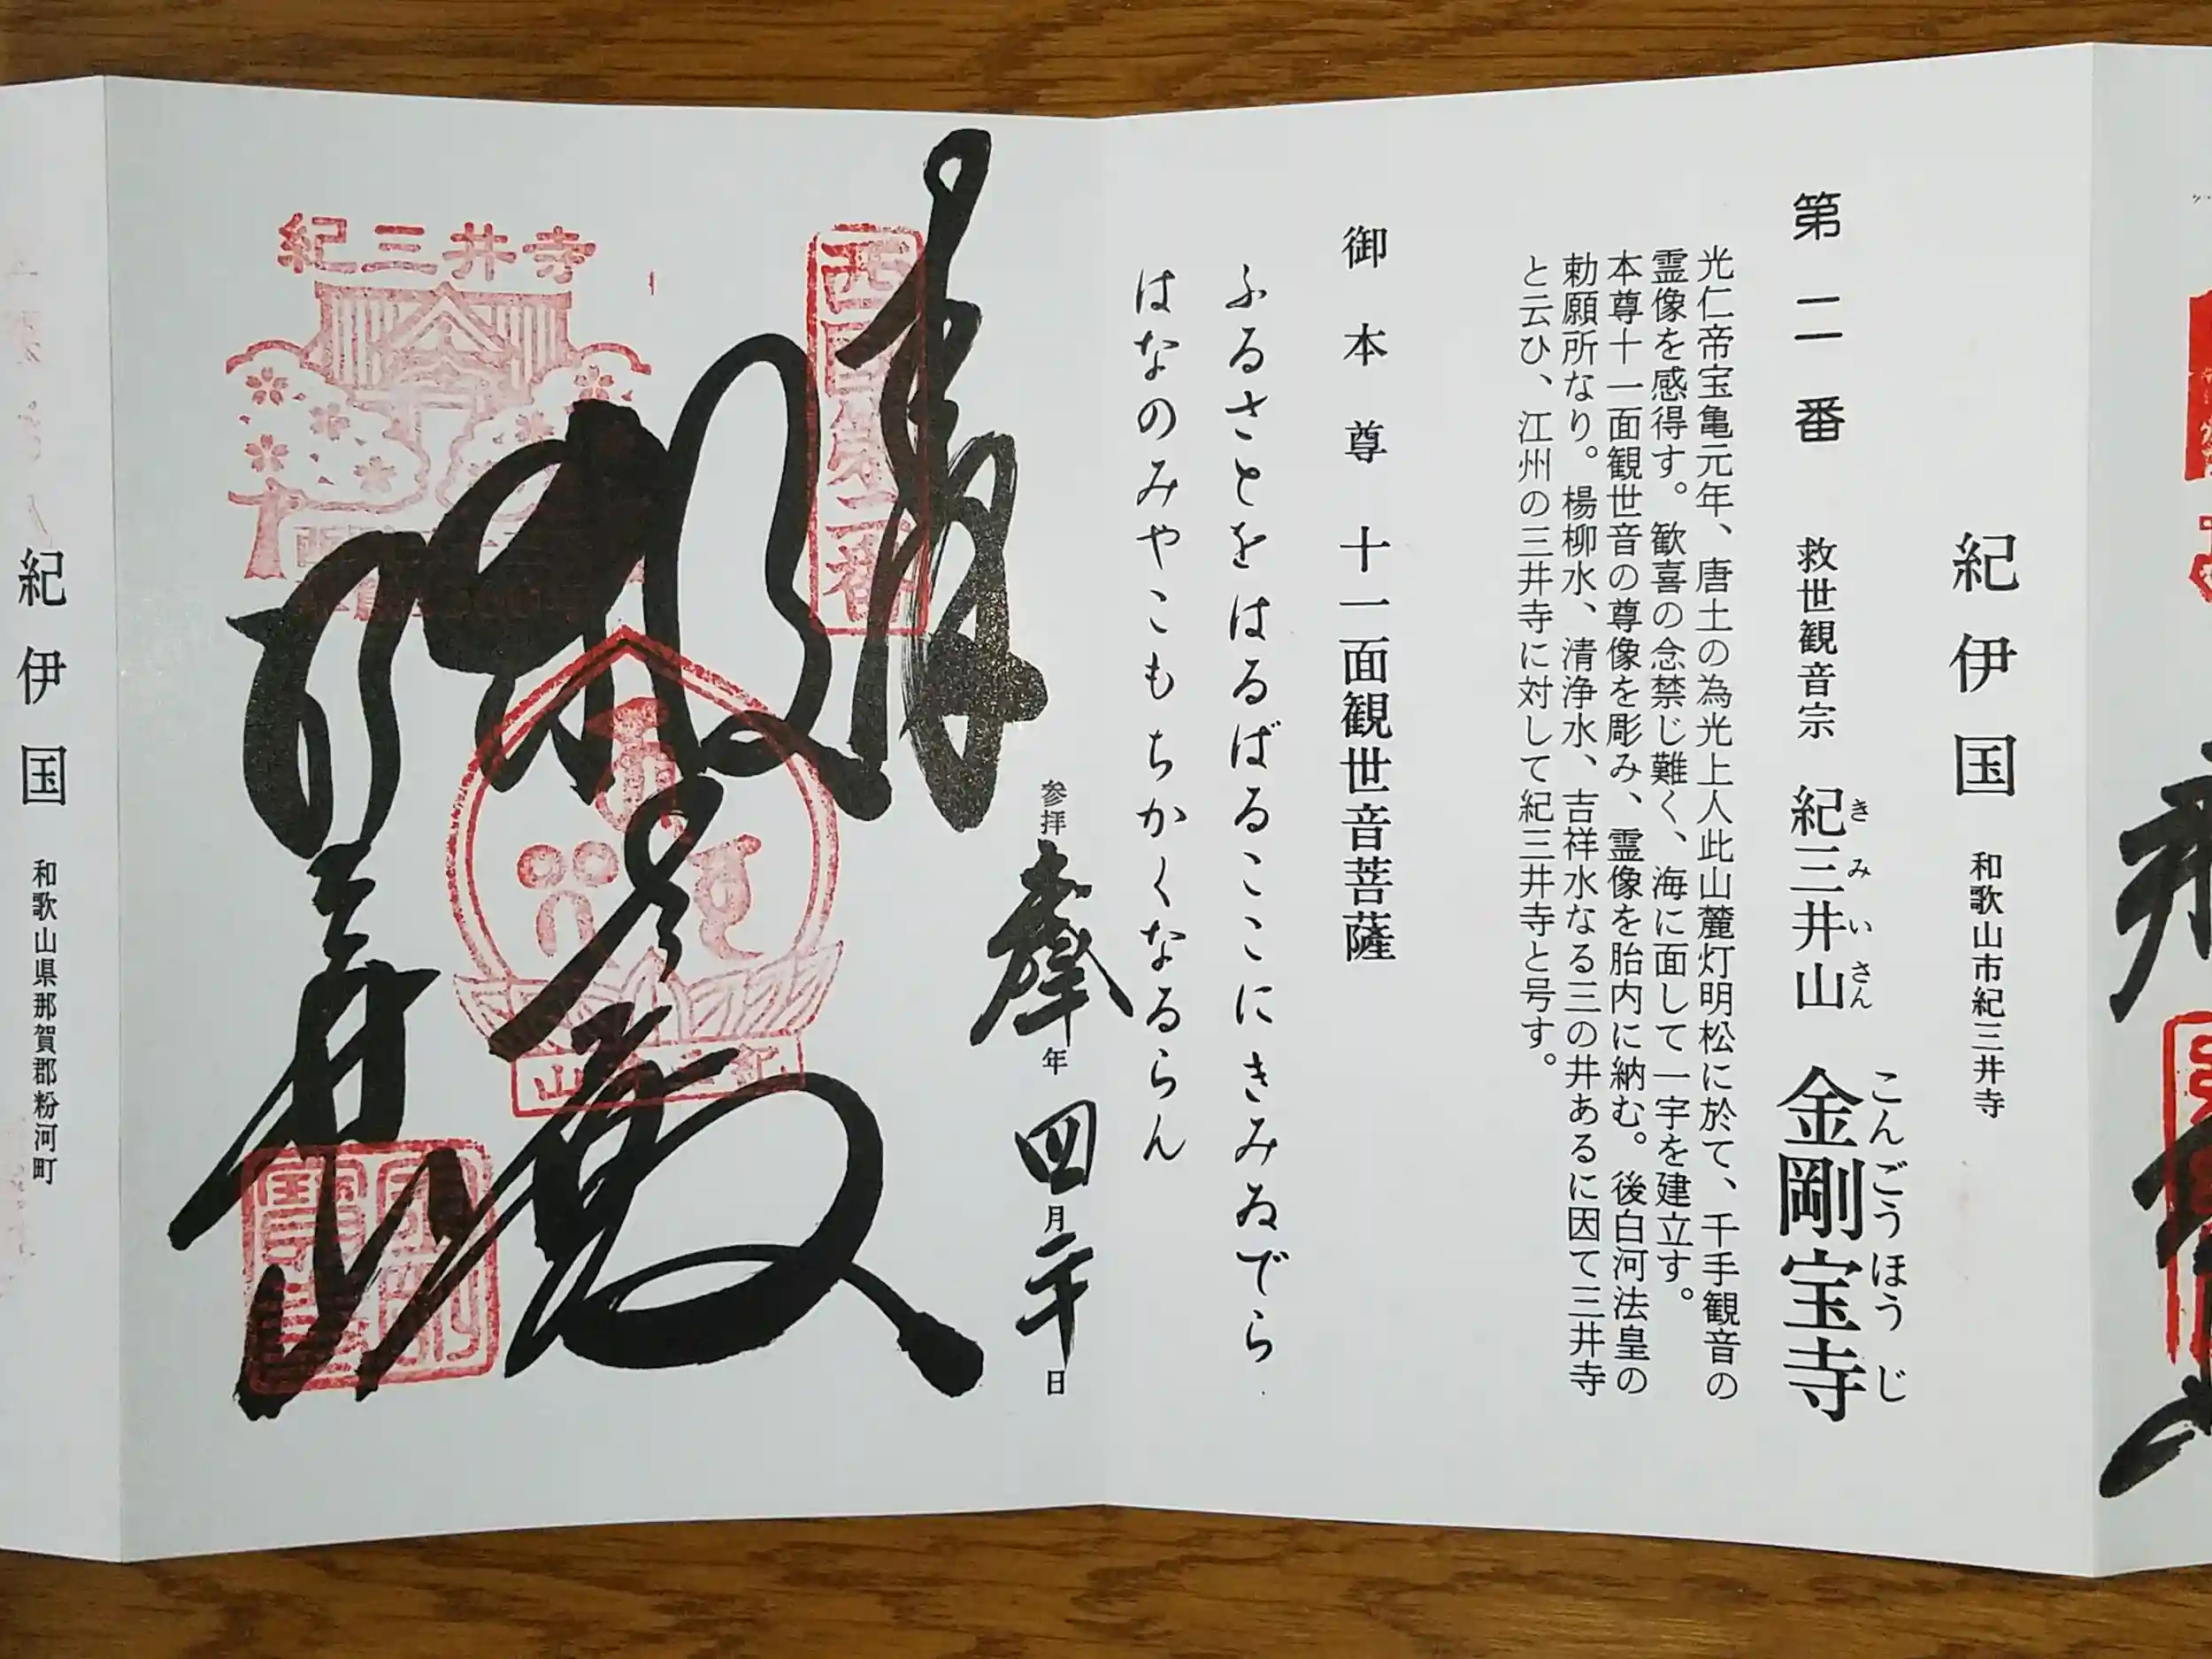 紀伊国　和歌山市紀三井寺
第二番　救世観音宗　紀三井山　金剛宝寺
きみいさん　こんごうほうじ
光仁帝宝亀元年、唐土の為光上人此山麓灯明松に於て、千手観音の
霊像を感得す。歓喜の念禁じ難く、海に面して一宇を建立す。
本尊十一面観世音の尊像を彫み、霊像を胎内に納む。後白河法皇の
勅願所なり。楊柳水、清浄水、吉祥水なる三の井あるに因て三井寺
と云ひ、江州の三井寺に対して紀三井寺と号す。
御本尊　十一面観世音菩薩
ふるさとをはるばるここにきみゐでら
はなのみやこもちかくなるらん
参拝　年　四月二十日
奉拝
西国第二番
紀三井寺
紀三井山
紀伊国　和歌山県那賀郡粉河町